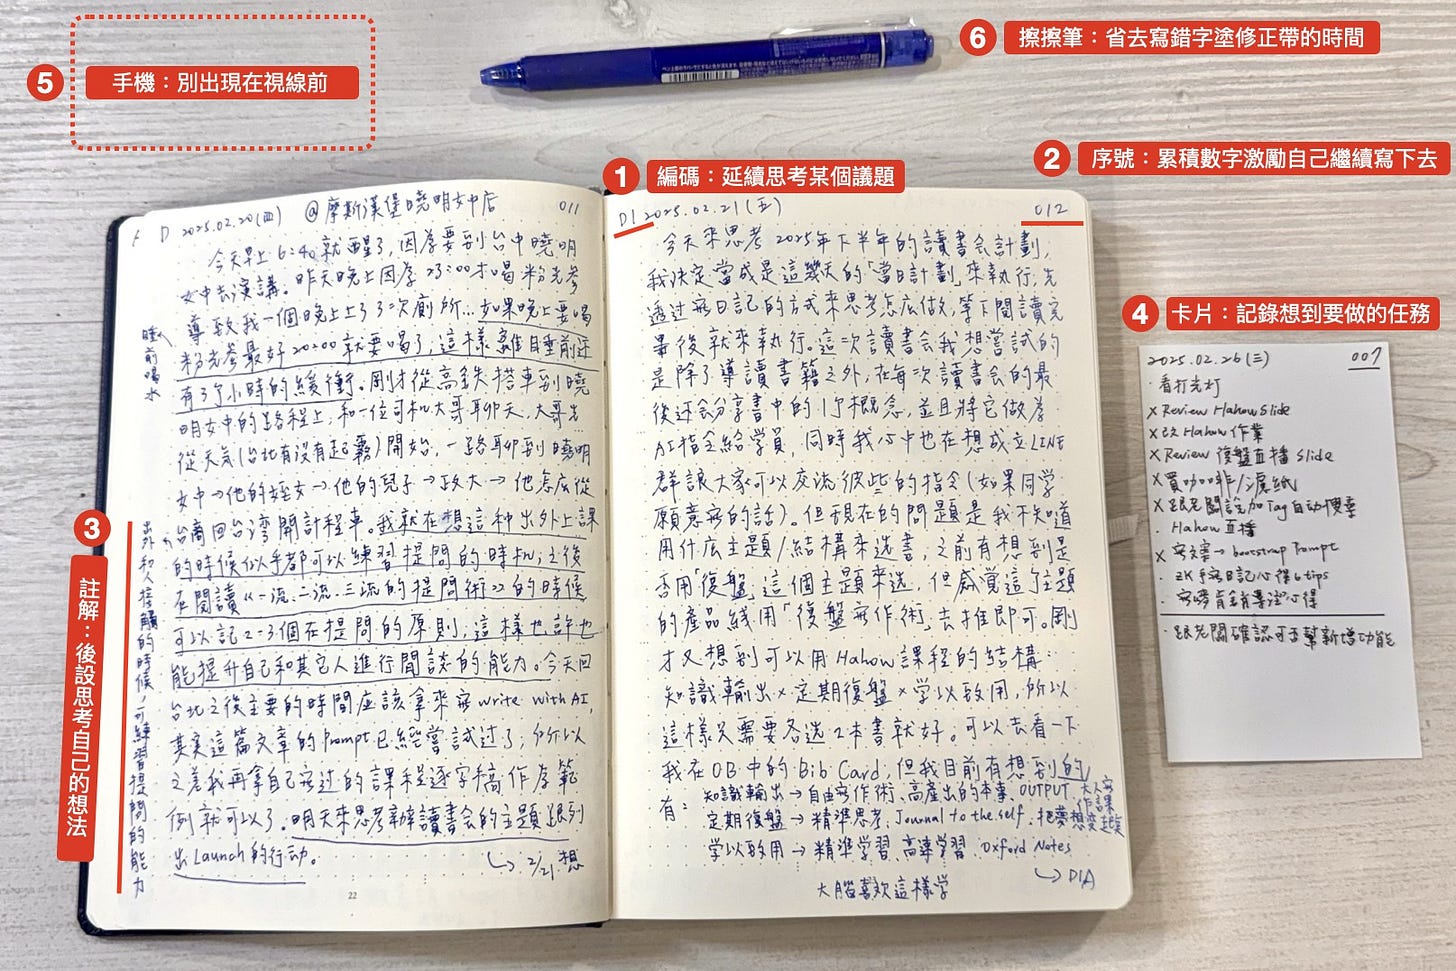 5 手機：別出現在視線前
6 擦擦筆：省去寫錯字塗修正帶的時間
1 編碼：延續思考某個議題
2 序號：累積數字激勵自己繼續寫下去
4 卡片：記錄想到要做的任務
3 註解：後設思考自己的想法
D 2025.02.20(四) @摩斯漢堡曉明女中店 011
今天早上6:40就醒了，因為要到台中曉明
女中去演講。昨天晚上因為23:00才喝粉光參
導致我一個晚上上了3次廁所…如果晚上要喝
粉光參最好20:00就要喝了，這樣離睡前還
有3個小時的緩衝。剛才從高鐵搭車到曉
明女中的路程上，和一位司机大哥聊天，大哥先
從天氣(台北有沒有起霧)開始，一路聊到曉明
女中→他的姪女→他的兒子→政大→他怎麼從
台商回台湾開計程車。我就在想這种出外上課
的時候似乎都可以練習提問的時机，之後
在閱讀《一流、二流、三流的提問術》的時候
可以記2-3個在提問的原則，這樣也許也
能提升自己和其它人進行閒談的能力。今天回
台北之後主要的時間應該拿來寫write with AI，
其實這篇文章的Prompt已經嘗試過了，所以
之差我再拿自己寫过的課程逐字稿作為範
例就可以了。明天來思考辦讀書会的主題跟列
出Launch的行动。 → 2/21 想
睡前喝水
出外和人接觸的時候，可練習提問的能力
22
D1 2025.02.21(五) 012
今天來思考2025年下半年的讀書会計劃，
我決定當成是這幾天的「當日計劃」來執行，先
透过寫日記的方式來思考怎広做，等下閱讀完
畢後就來執行。這一次讀書會我想嘗試的
是除了導讀書籍之外，在每次讀書会的最
後还会分享書中的1个概念，並且將它做為
AI指令給學員，同時我心中也在想成立LINE
群讓大家可以交流彼些的指令(如果同学
願意寫的話)。但現在的問題是我不知道
用什広主題/結構來选書，之前有想到是
否用「復盤」這個主題來选，但感覚這个主題
的產品线用「復盤寫作術」去推即可。剛
才又想到可以用Hahow課程的結構：
知識輸出×定期復盤×学以致用，所以
這樣只需要各选2本書就好。可以去看一下
我在OB中的Bib Card，但我目前有想到的
有：知識輸出→自由寫作術、高產出的本事、OUTPUT、大人寫作課
定期復盤→精準思考、Journal to the self、把夢想變起點
学以致用→精準学習、高速学習、Oxford Notes
大腦喜欢這樣学
→ D1A
2025.02.26(三) 007
· 看打先打
× Review Hahow Slide
× 改Hahow作業
× Review 復盤直播 Slide
× 買咖啡/濾紙
× 跟老闆說加Tag自动優惠
· Hahow直播
× 寫文章→bootstrap Prompt
· ZK手寫日記心得6 tips
· 寫
· 跟老闆確認可否幫新增功能